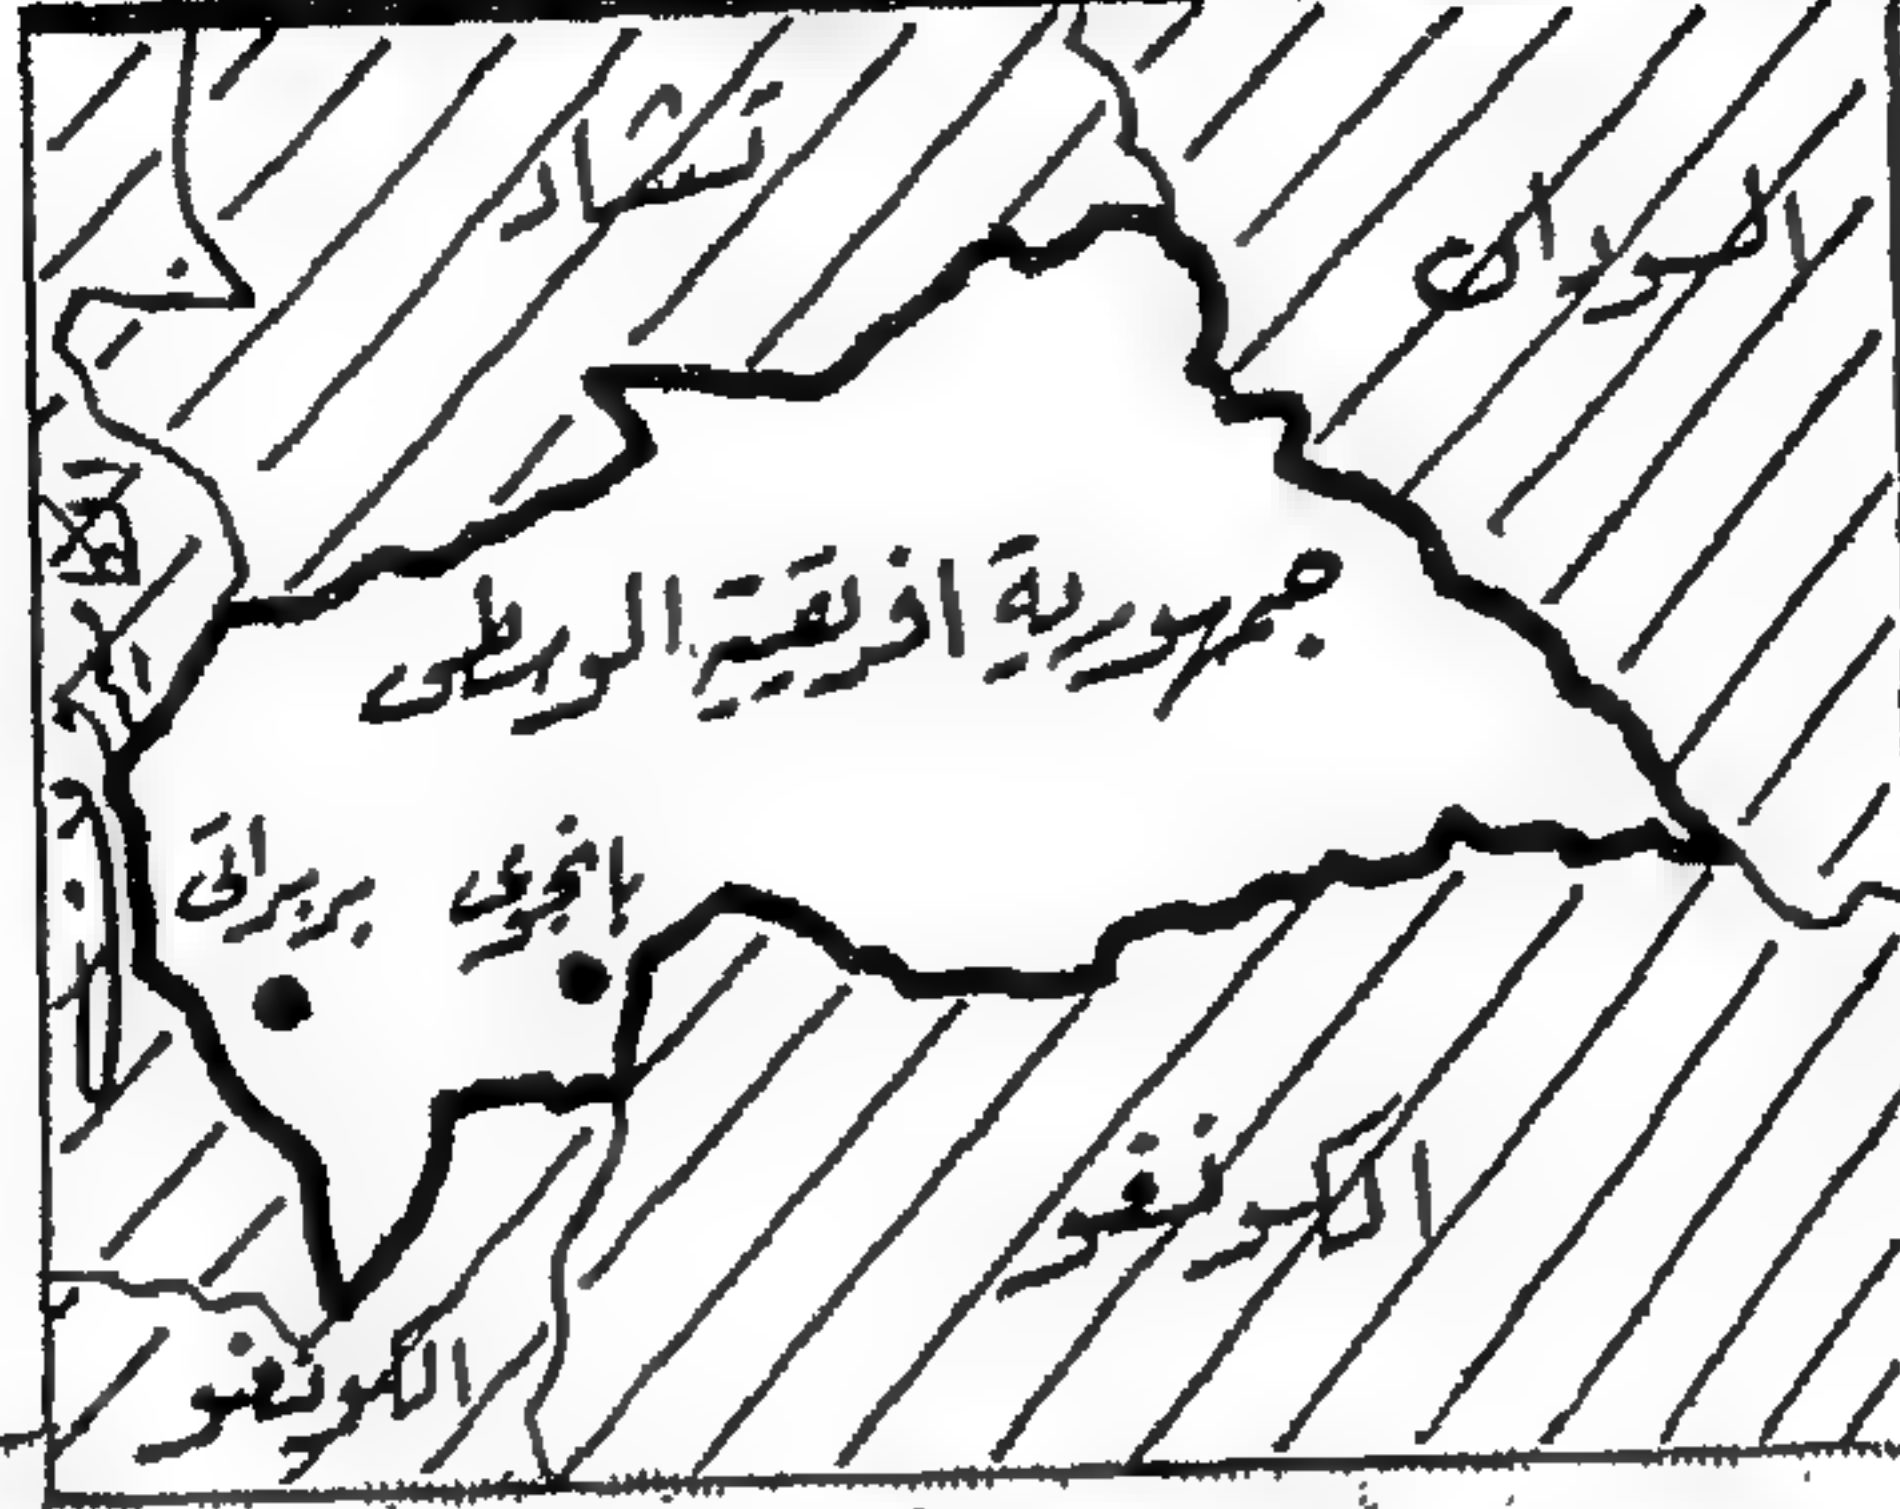 تشاد
السودان
جمهورية افريقية الوسطى
بانجوى
الكونغو
الكونغو